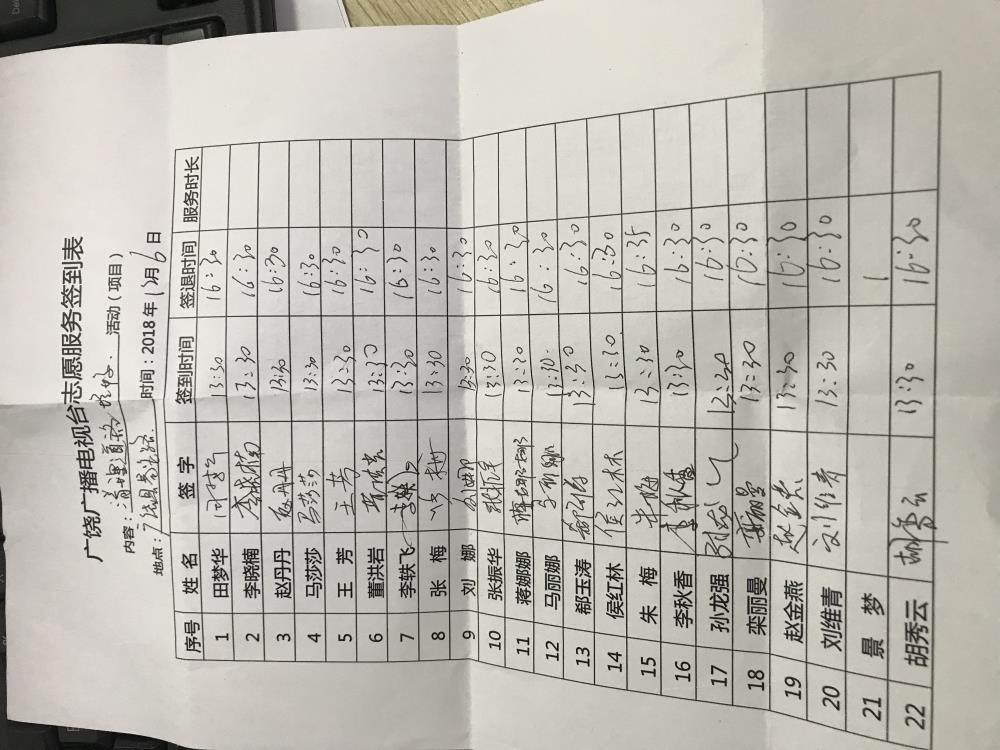 广饶广播电视台志愿服务签到表
内容：清理道路 活动（项目）
地点： 时间：2018年1月6日
序号 姓名 签字 签到时间 签退时间 服务时长
1 田梦华 13:30 16:30
2 李晓楠 李晓楠 13:30 16:30
3 赵丹丹 赵丹丹 13:30 16:30
4 马莎莎 马莎莎 13:30 16:30
5 王芳 王芳 13:30 16:30
6 董洪岩 董洪岩 13:30 16:30
7 李轶飞 13:30 16:30
8 张梅 张梅 13:30 16:30
9 刘娜 刘娜 13:30 16:30
10 张振华 张振华 13:30 16:30
11 蒋娜娜 蒋娜娜 13:30 16:30
12 马丽娜 马丽娜 13:30 16:30
13 郗玉涛 13:30 16:30
14 侯红林 侯红林 13:30 16:30
15 朱梅 朱梅 13:30 16:35
16 李秋香 李秋香 13:30 16:30
17 孙龙强 16:30
18 栾丽曼 栾丽曼 13:30 16:30
19 赵金燕 赵金燕 13:30 16:30
20 刘维青 刘维青 13:30 16:30
21 景梦
22 胡秀云 胡秀云 13:30 16:30